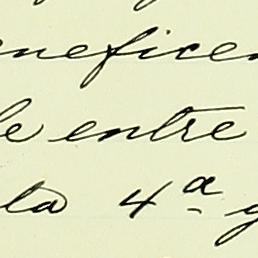 eneficen
le entre
ta 4ª y